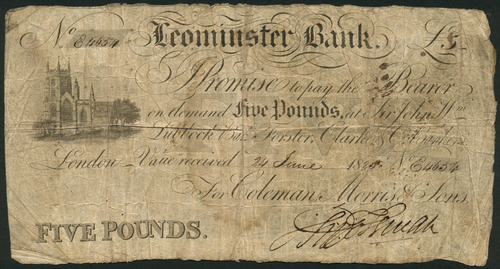 No E4654 Leominster Bank. £5.
I Promise to pay the Bearer
on demand Five Pounds, at Sir John Wm
Lubbock Forster, Clarke & Co
London Value received 24 June 182 No E4654
For Coleman Morris & Sons
FIVE POUNDS.